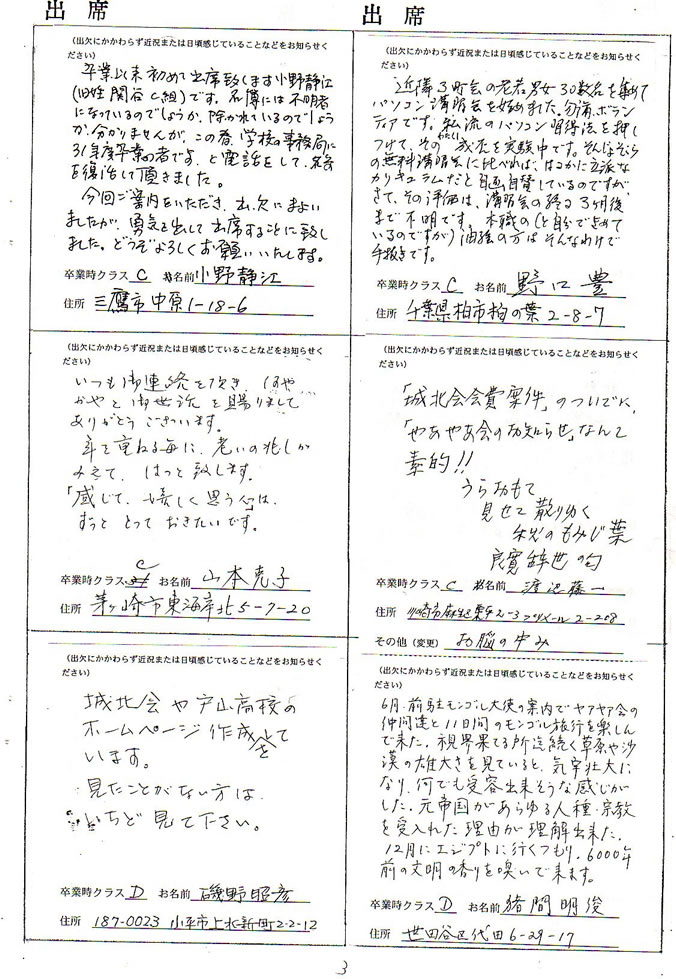 出席
(出欠にかかわらず近況または日頃感じていることなどをお知らせく
ださい)
卒業以来初めて出席致します小野静江
(旧姓関谷C組)です。名簿には不明者
になっているのでしょうか、除かれているのでしょう
か、分かりませんが、この春、学校の事務局に
31年度卒業の者です、と電話をして、名を
を復活して頂きました。
今回ご案内をいただき、出欠にまよい
ましたが、勇気を出して出席することに致し
ました。どうぞよろしくお願いいたします。
卒業時クラス C お名前 小野静江
住所 三鷹市中原1-18-6
出席
(出欠にかかわらず近況または日頃感じていることなどをお知らせく
ださい)
近隣3町会の老若男女30数名を集めて
パソコン講習会を始めました。勿論、ボラン
ティアです。私流のパソコン習得法を押し
つけて、その成否を実験中です。そんじょそこら
の無料講習会に比べれば、はるかに立派な
カリキュラムだと自画自賛しているのですが
さて、その評価は、講習会の終る3ヶ月後
まで不明です。本職の(と自分で決めて
いるのですが)油絵の方はそんなわけで
手抜きです。
卒業時クラス C お名前 野口豊
住所 千葉県柏市柏の葉2-8-7
(出欠にかかわらず近況または日頃感じていることなどをお知らせく
ださい)
いつも御連絡を頂き、はや
かやと御世話を賜りまして
ありがとうございます。
年を重ねる毎に、老いの兆しが
みえて、はっと致します。
「感じて、嬉しく思う心」は、
ずっと とって おきたいです。
卒業時クラス C お名前 山本克子
住所 茅ヶ崎市東海岸北5-7-20
(出欠にかかわらず近況または日頃感じていることなどをお知らせく
ださい)
「城北会会費案件」のついでに、
「やあやあ会のお知らせ」なんて
素的!!
うらおもて
見せて散りゆく
秋のもみじ葉
良寛辞世の句
卒業時クラス C お名前 渡辺藤一
住所 川崎市麻生区 2-208
その他(変更) お脳の中み
(出欠にかかわらず近況または日頃感じていることなどをお知らせく
ださい)
城北会や戸山高校の
ホームページ作成をして
います。
見たことがない方は、
いちど見て下さい。
卒業時クラス D お名前 磯野昭彦
住所 187-0023 小平市上水新町2-2-12
(出欠にかかわらず近況または日頃感じていることなどをお知らせく
ださい)
6月、前駐モンゴル大使の案内でヤアヤア会の
仲間達と11日間のモンゴル旅行を楽しん
で来た。視界果てる所迄続く草原や沙
漠の雄大さを見ていると、気宇壮大に
なり、何でも受容出来そうな感じが
した。元帝国があらゆる人種・宗教
を受入れた理由が理解出来た。
12月にエジプトに行くつもり。6000年
前の文明の香りを嗅いで来ます。
卒業時クラス D お名前 猪間明俊
住所 世田谷区代田6-29-17
3